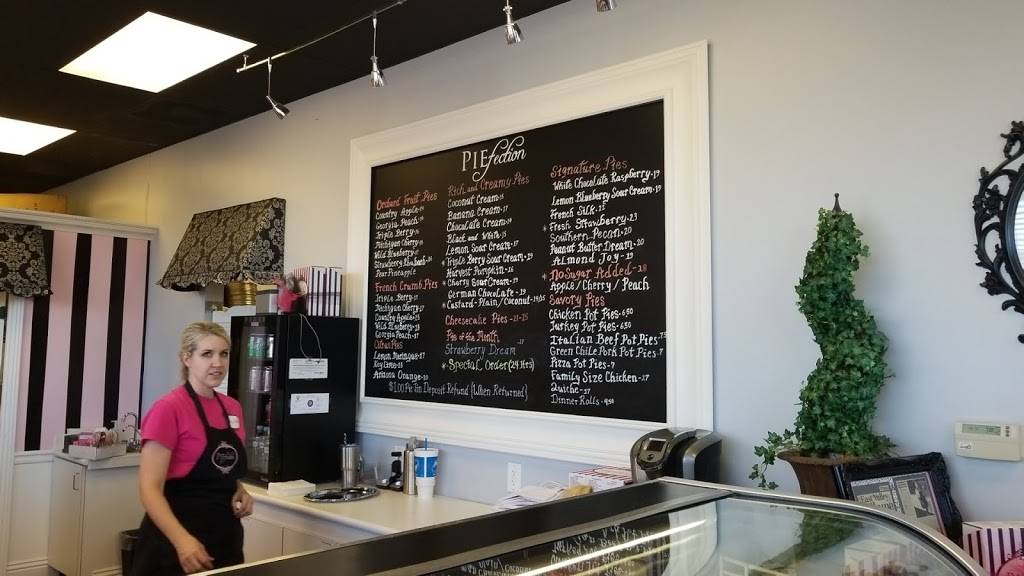 PIEfection
Orchard Fruit Pies
Country Apple
Georgia Peach
Triple Berry
Michigan Cherry
Wild Blueberry
Strawberry Rhubarb
Pear Pineapple
French Crumb Pies
Triple Berry
Michigan Cherry
Country Apple
Wild Blueberry
Georgia Peach
Citrus Pies
Lemon Meringue
Key Lime
Arizona Orange
Rich and Creamy Pies
Coconut Cream
Banana Cream-17
Chocolate Cream
Black and White
Lemon Sour Cream-17
*Triple Berry Sour Cream-19
Harvest Pumpkin
*Cherry Sour Cream-17
German Chocolate-19
*Custard-Plain/Coconut
Cheesecake Pies
Pie of the Month
Strawberry Dream
*Special Order (24 Hrs)
$1.00 Pie Tin Deposit Refund (When Returned)
Signature Pies
White Chocolate Raspberry-19
Lemon Blueberry Sour Cream-19
French Silk
*Fresh Strawberry-23
Southern Pecan-20
Peanut Butter Dream-20
Almond Joy-19
*No Sugar Added-18
Apple/Cherry/Peach
Savory Pies
Chicken Pot Pies-6.50
Turkey Pot Pies-6.50
Italian Beef Pot Pies
Green Chile Pork Pot Pies-7
Pizza Pot Pies-7
Family Size Chicken-17
Quiche-17
Dinner Rolls